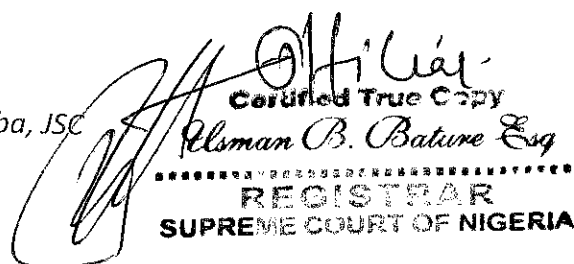 ba, JSC
Certified True Copy
Usman B. Bature Esq
REGISTRAR
SUPREME COURT OF NIGERIA